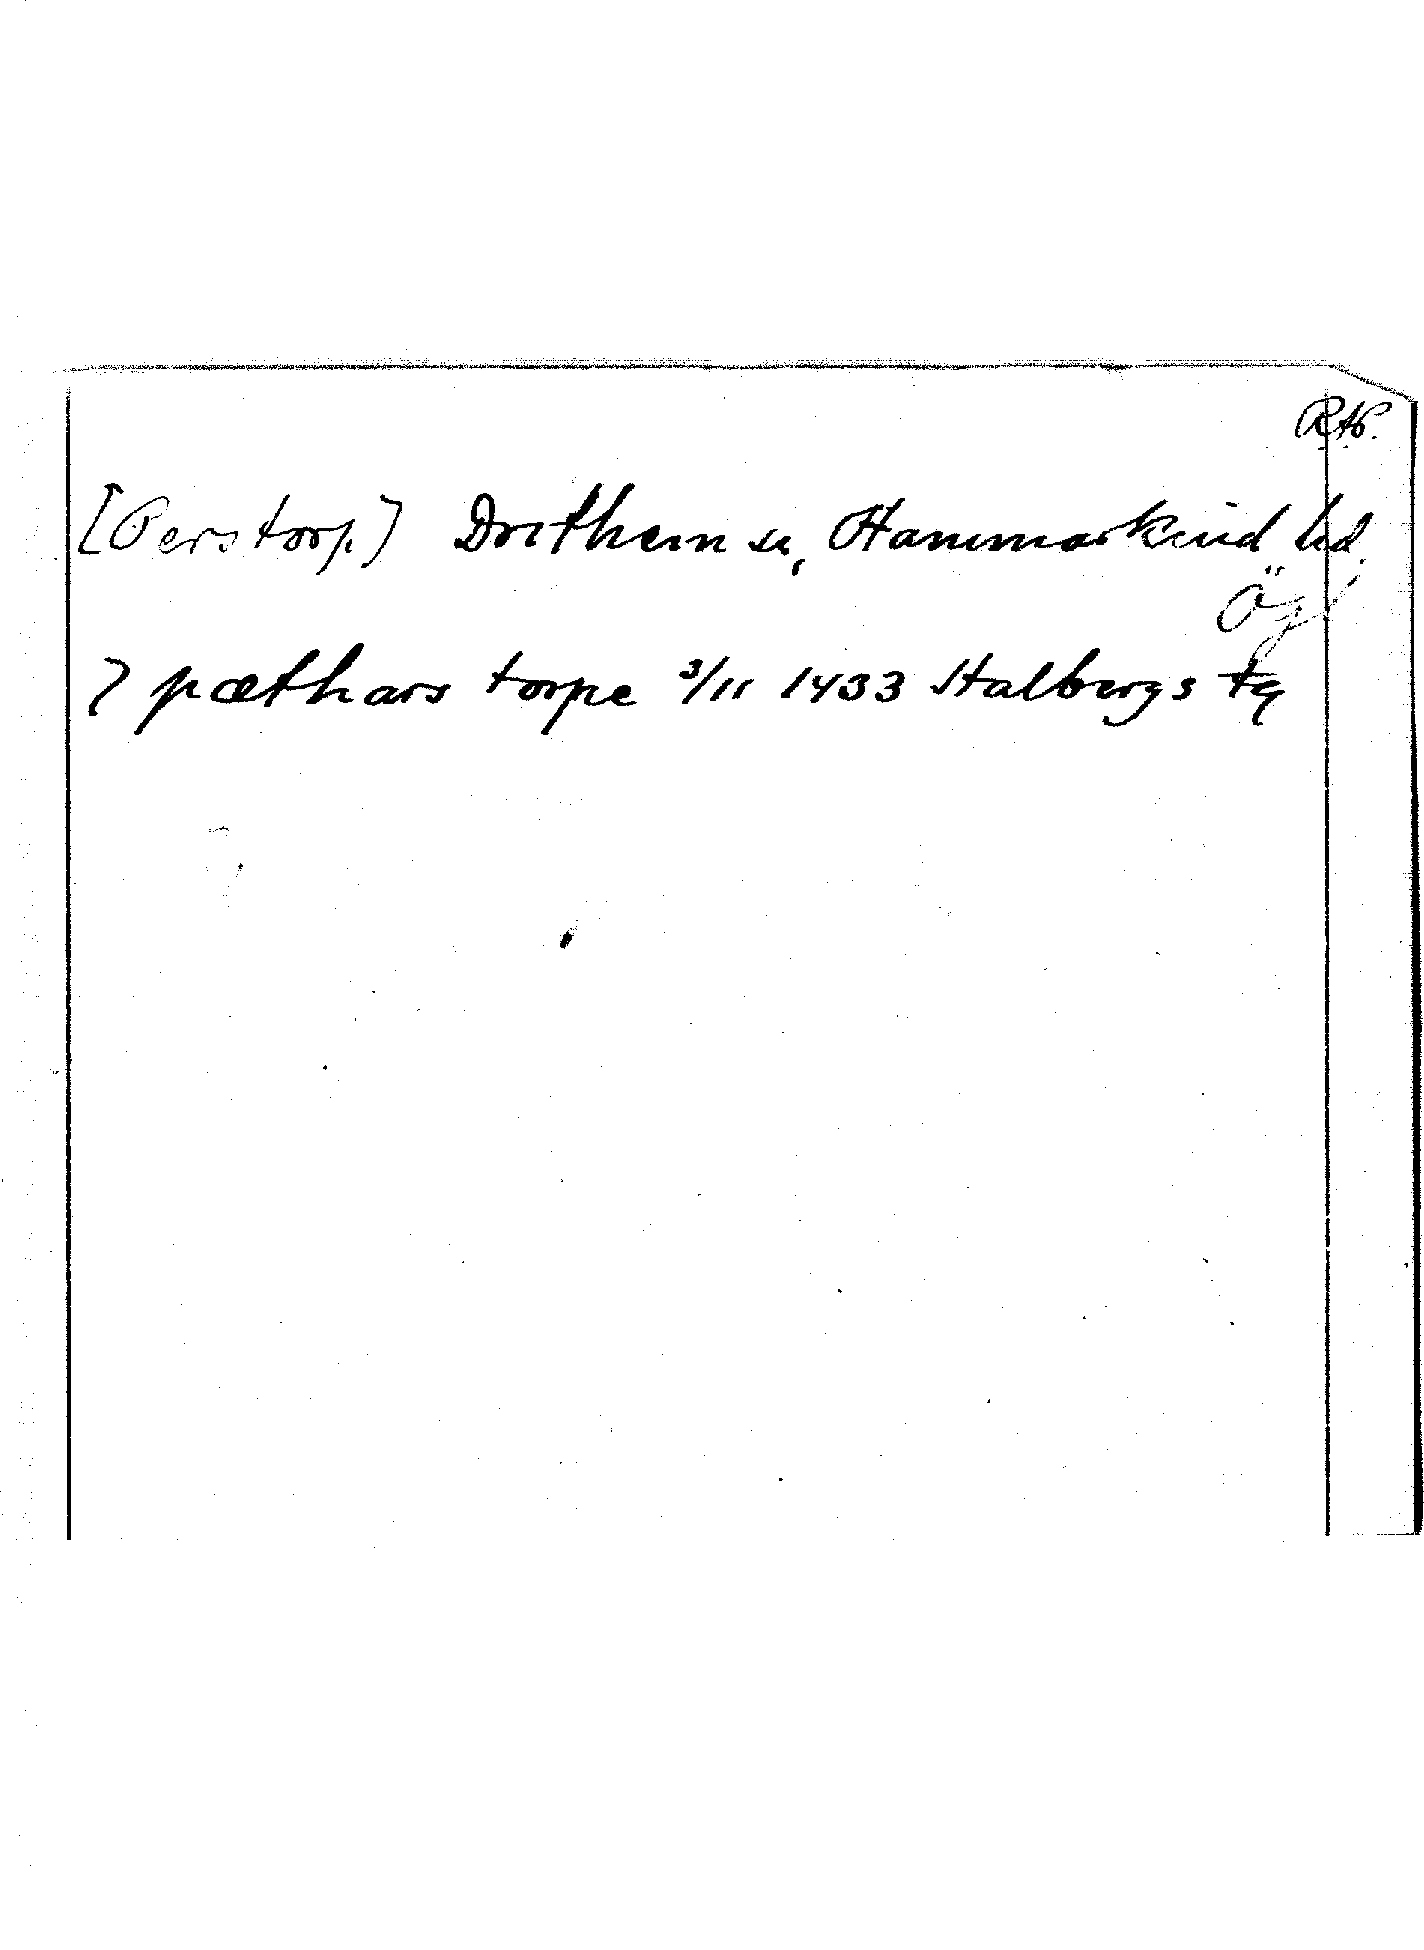 RAp.
[Perstorp] Drothem sn, Hammarkind hd.
Ögl
7 pæthars torpe 3/11 1433 Stalbergs tg